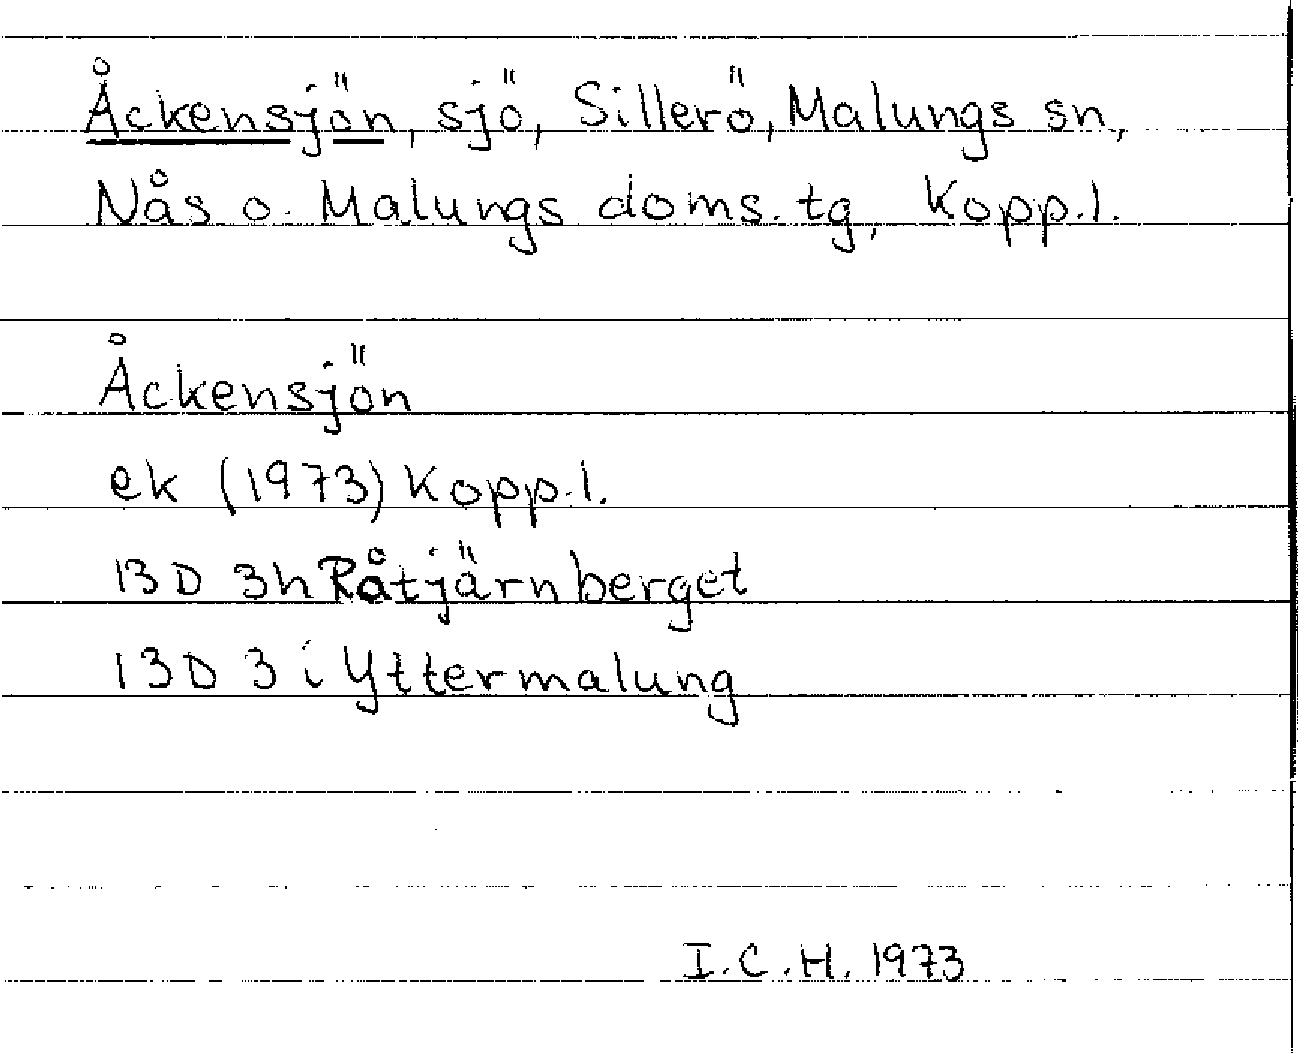 Åckensjön, sjö, Sillerö, Malungs sn,
Nås o. Malungs doms. tg, Kopp.l.
Åckensjön
ek (1973) Kopp.l.
13D 3h Råtjärnberget
13D 3i Yttermalung
I.C.H. 1973